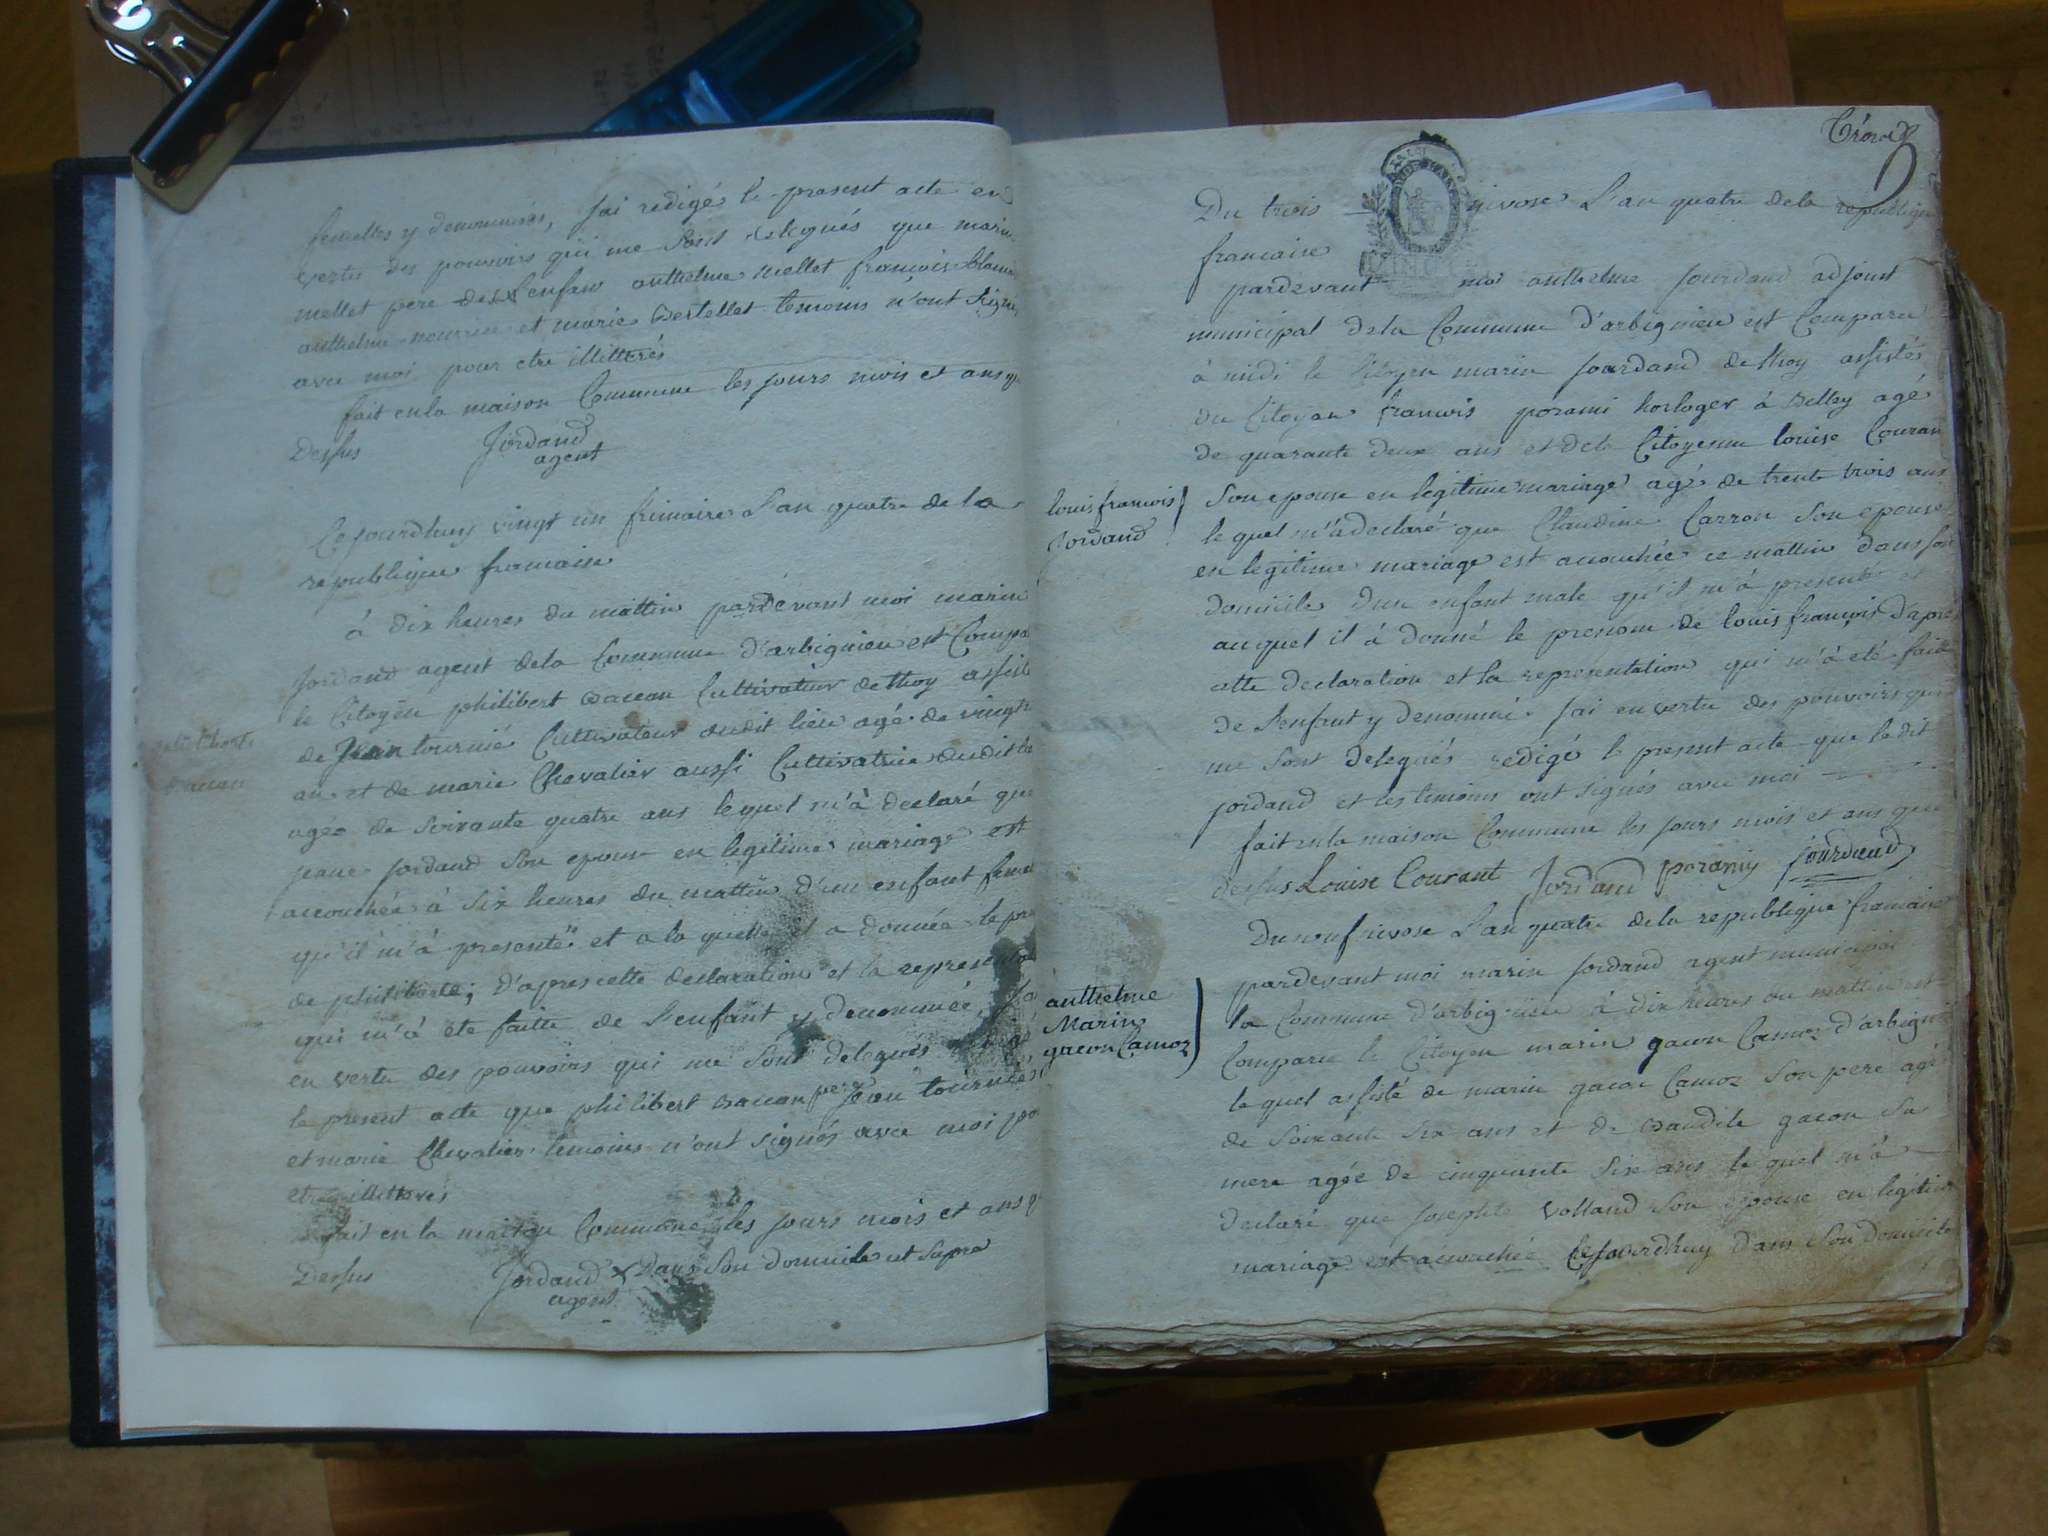 femelles y denommés, Jai redigé le present acte en
vertu des pouvoirs qui me sont delegués que marin
mellet pere des enfans anthelme mellet francoise
anthelme et marie temoins n'ont signé
avec moi pour etre illitterés
fait en la maison Commune les jours mois et ans que
Dessus Jordand
agent
Cejourdhuy vingt un frimaire L'an quatre de la
republique francaise
à dix heures du mattin pardevant moi marin
Jordand agent dela Commune d'arbignieu est Compa
le Citoyen philibert Baccon Cultivateur de thoy assist
de Jean tournié Cultivateur dudit lieu agé de vingt
an et de marie Chevalier aussi Cultivatrice dudit lie
agée de soixante quatre ans lequel m'à declaré que
jeane Jordand son epouse en legitime mariage est
accouchée à six heures du mattin d'un enfant femel
qu'il m'à presenté et a la quelle il a donnée le pre
de philiberte; D'apres cette declaration et la represent
qui m'à été faitte de L'enfant y denommée, Jai
en vertu des pouvoirs qui me sont delegués
le present acte que philibert Baccon pere Jean tournié
et marie Chevalier temoins n'ont signés avec moi po
etre illitterés
fait en la maison Commune les jours mois et ans q
Dessus Jordand x Dans son domicile ut supra
agent
Du trois nivose L'an quatre dela republique
francaise
pardevant moi anthelme Jourdand adjoint
municipal dela Commune d'arbignieu est Comparu
à midi le Citoyen marin Jourdand de thoy assistés
du Citoyen francois porami horloger à Belley agé
de quarante deux ans et dela Citoyenne louise Couran
louis francois
Jordand
son epouse en legitime mariage agé de trente trois ans
le quel m'à declaré que Claudine Carron son epouse
en legitime mariage est accouchée ce mattin dans son
domicile dun enfant male qu'il m'à presenté et
au quel il à donné le prenom de louis françois Dapre
cette declaration et la representation qui m'à été faite
de L'enfant y denommé Jai en vertu des pouvoirs qui
me sont delegués redigé le present acte que ledit
jordand et les temoins ont signés avec moi
fait en la maison Commune les jours mois et ans que
dessus Louise Courant Jordand poramy Jourdand
Du neuf nivose L'an quatre dela republique francaise
pardevant moi marin Jordand agent municipal
anthelme
Marin
gacon Camoz
la Commune d'arbignieu à dix heures du mattin est
Comparu le Citoyen marin gacon Camoz d'arbigni
le quel assisté de marin gacon Camoz son pere agé
de soixante six ans et de Baudile gacon sa
mere agée de cinquante six ans le quel m'à
declaré que josephte Volland son epouse en legitim
mariage est accouchée Cejourdhuy dans son domicile